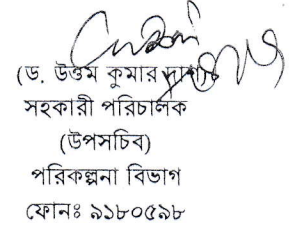 (ড. উত্তম কুমার দাশ)
সহকারী পরিচালক
(উপসচিব)
পরিকল্পনা বিভাগ
ফোনঃ ৯১৮০৫৯৮